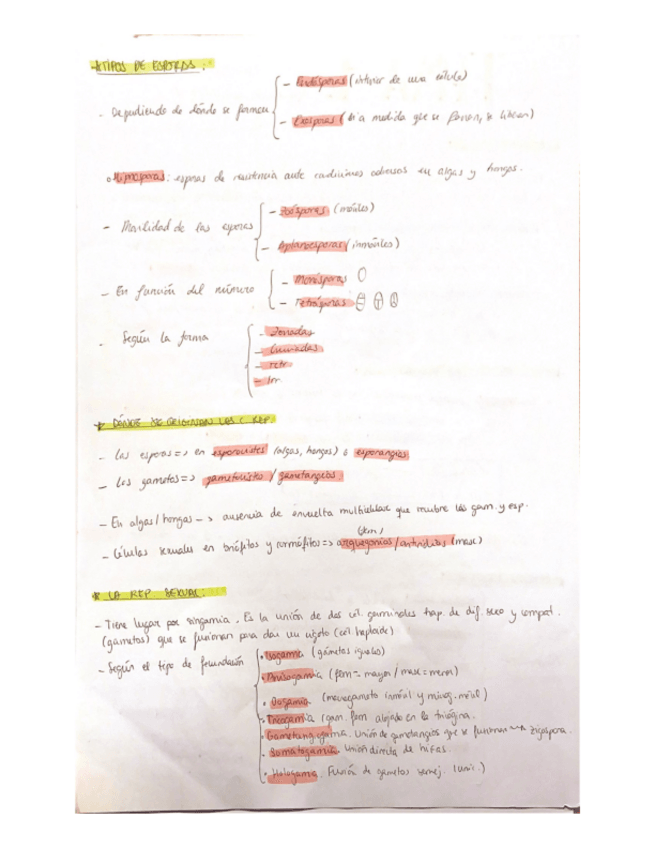 *TIPOS DE ESPORAS:
- Dependiendo de dónde se forman
- Endósporas (interior de una célula)
- Exósporas ( a medida que se forman, se liberan)
• Hipnósporas: esporas de resistencia ante condiciones adversas en algas y hongos.
- Movilidad de las esporas
- Zoósporas (móviles)
- Aplanoesporas (inmóviles)
- En función del número
- Monósporas
- Tetrásporas
- Según la forma
- Zonadas
- Cruciadas
- tetr
* DÓNDE SE ORIGINAN LAS C REP.
- Las esporas => en esporocistes (algas, hongos) ó esporangios
- Los gametos => gametocistes / gametangios.
- En algas/hongos -> ausencia de envuelta multicelular que nubre los gam. y esp.
- Células sexuales en briófitos y cormófitos => arquegonios (fem) / anteridios (masc)
* LA REP SEXUAL:
- Tiene lugar por singamia. Es la unión de dos cel. germinales hap. de dif. sexo y compat.
(gametos) que se fusionan para dar un cigoto (cel haploide)
- Según el tipo de fecundación
• Isogamia (gametos iguales)
• Anisogamia (fem = mayor / masc = menor)
• Oogamia (macrogameto inmóvil y microg. móvil)
• Tricogamia (gam. fem alojado en la tricógina.
• Gametangiogamia. Unión de gametangios que se fusionan -> zigóspora.
• Somatogamia. Unión directa de hifas.
• Hologamia. Fusión de gametos semej. (unic.)